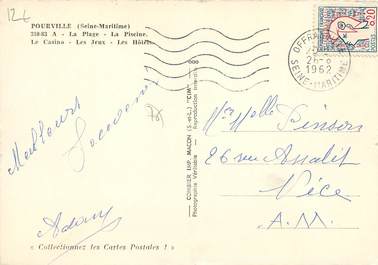 12€
POURVILLE (Seine-Maritime)
310-83 A - La Plage - La Piscine.
Le Casino - Les Jeux - Les Hôtels.
Meilleurs
Souvenirs
« Collectionnez les Cartes Postales ! »
COMBIER IMP. MACON (S.-&-L.) "CIM"
Photographie Véritable - Reproduction interdite
OFFRANVILLE
26-8
1962
SEINE-MARITIME
0,20
26 rue Assalit
Nice
A.M.